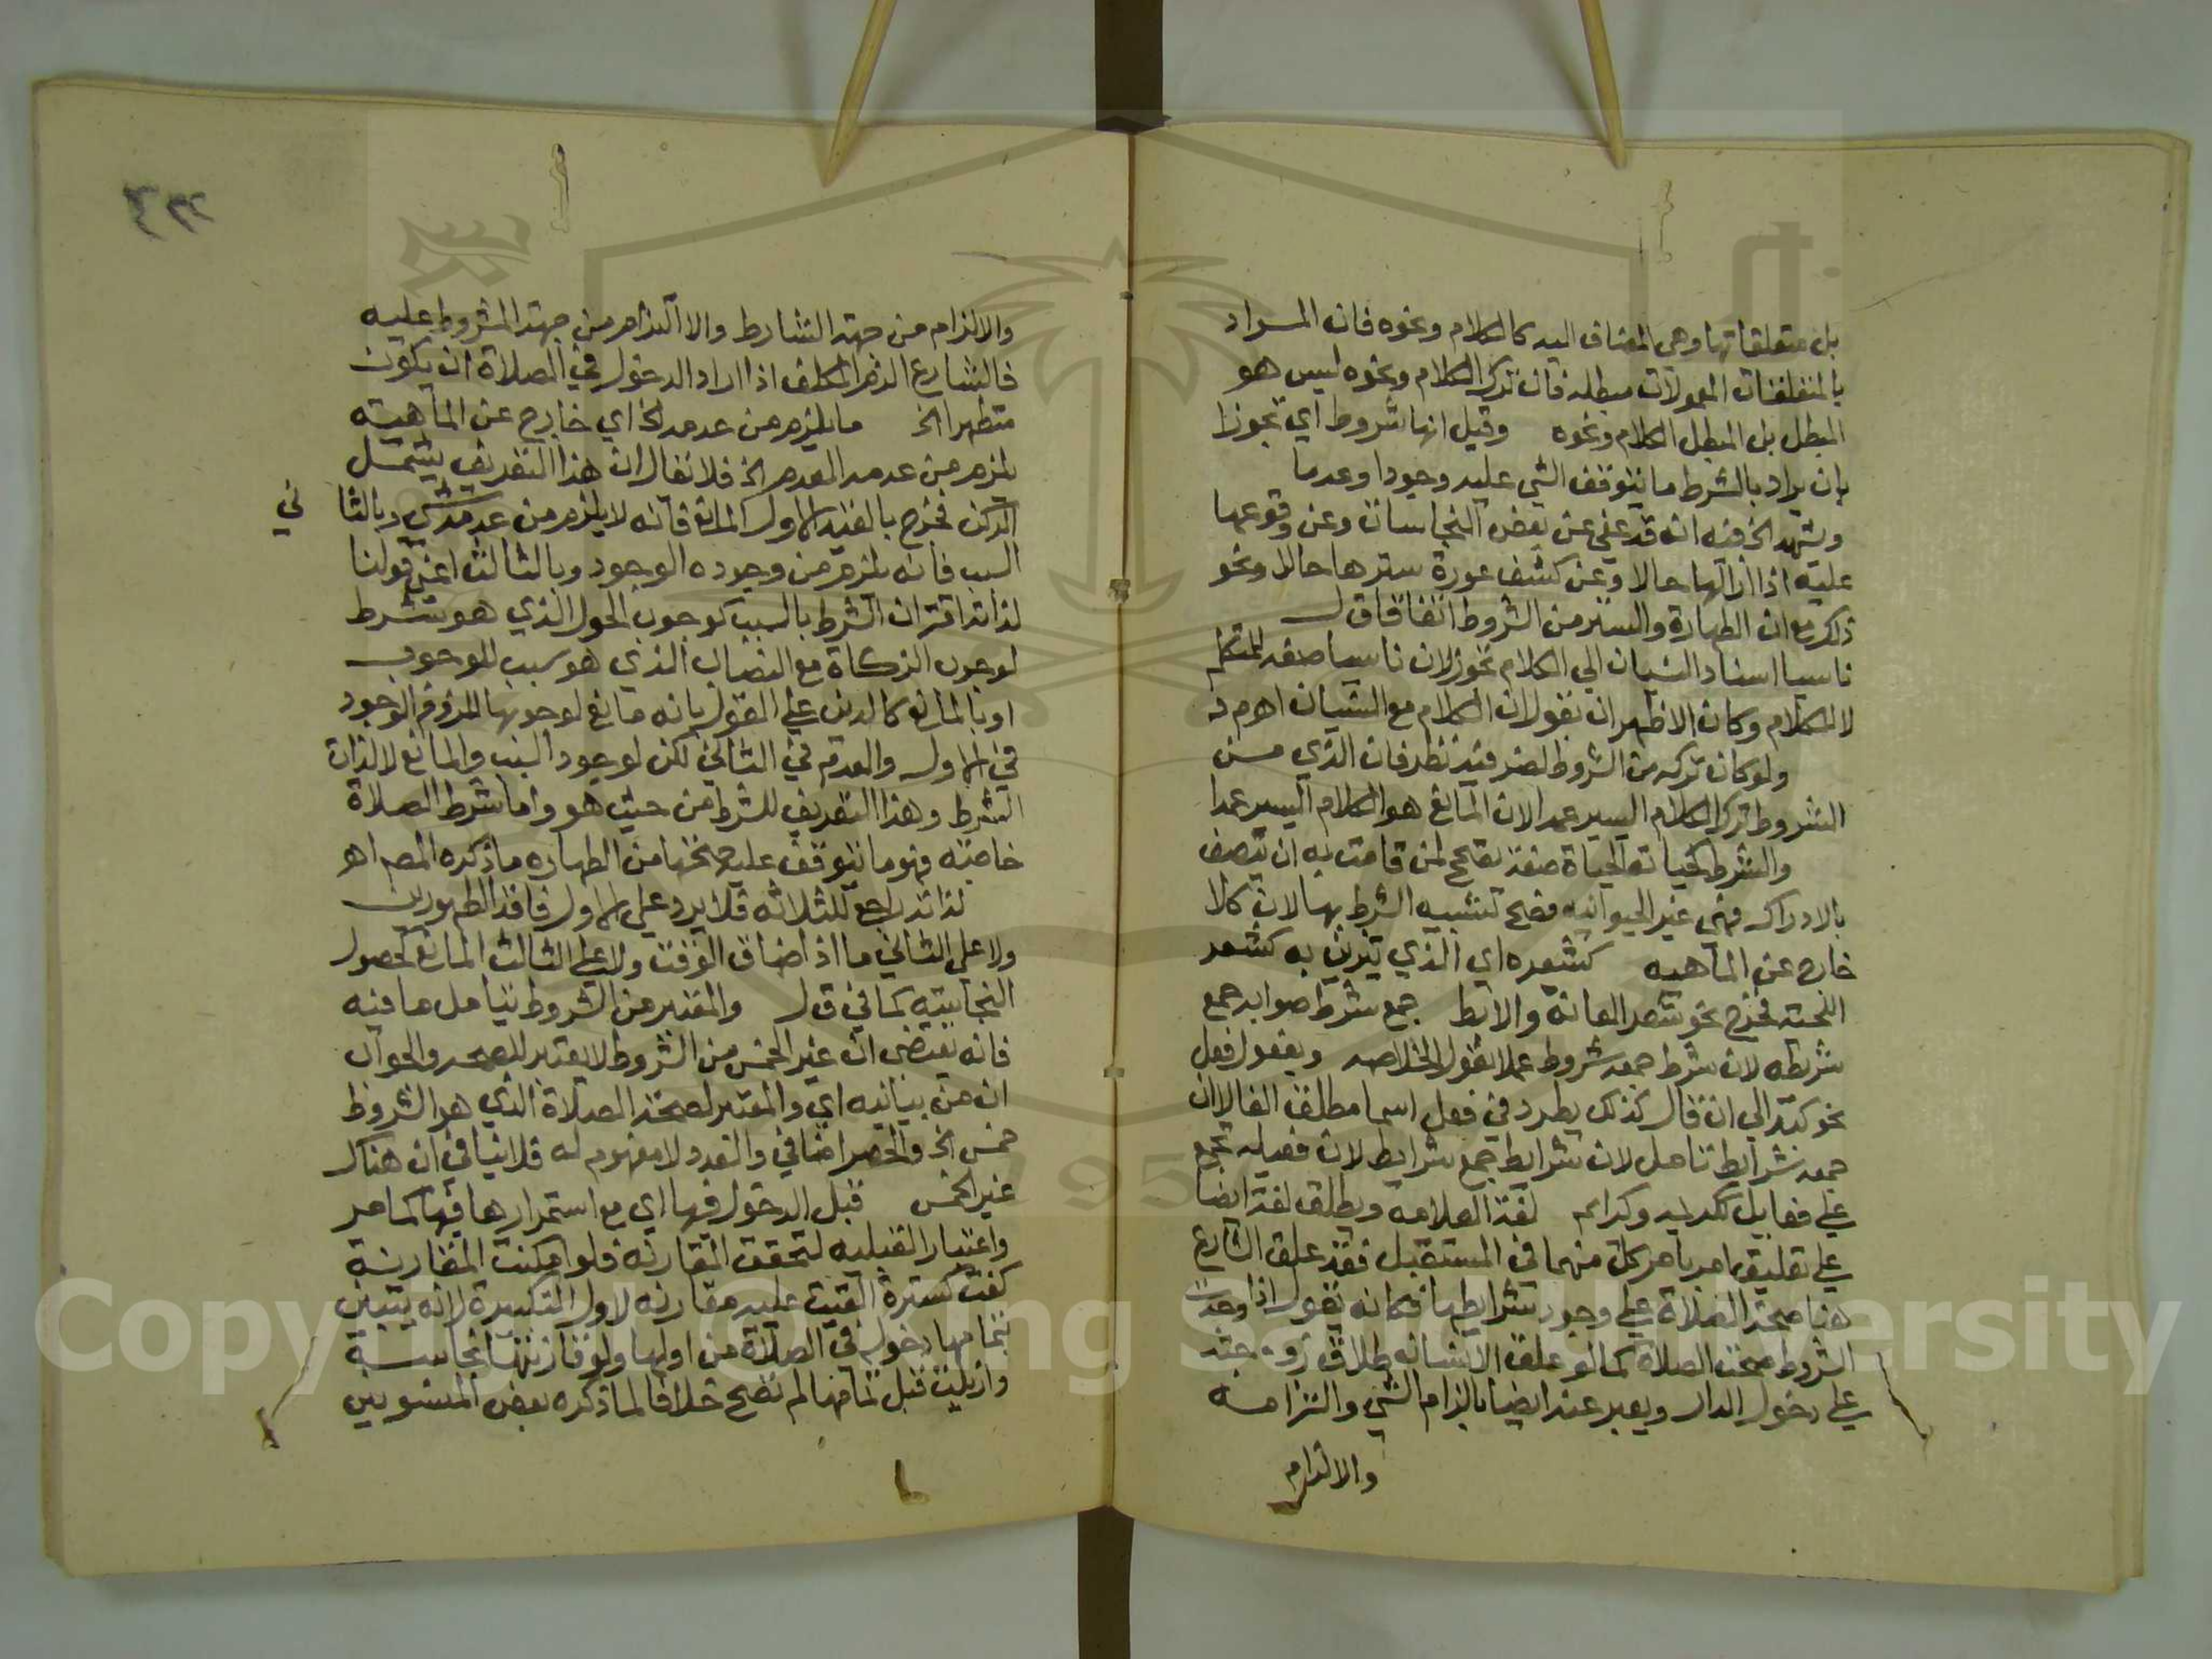 بل متعلقاتها وهي المضاف اليه كالكلام ونحوه فان المراد
بالمتعلقات المعمولات مبطله فان ترك الكلام ونحوه ليس هو
المبطل بل المبطل الكلام ونحوه وقيل انها شروط اي تجوزا
بان يراد بالشرط ما يتوقف الشي عليه وجودا وعدما
ويشهد الخ فيه انه قد عفي عن بعض النجاسات وعن وقوعها
عليه اذا ازالها حالا وعن كشف عورة سترها حالا ونحو
ذلك مع ان الطهارة والستر من الشروط اتفاقا ق ل
ناسيا اسناد النسيان الي الكلام تجوز لان ناسيا صفه للمتكلم
لا للكلام وكان الاظهر ان يقول لان الكلام مع النسيان اهـ م د
ولو كان تركه من الشروط لضر فيه نظر فان الذي من
الشروط ترك الكلام اليسير عمدا لان المانع هو الكلام اليسير عمدا
والشرط كحياته الحياة صفة تصحح لمن قامت به ان يتصف
بالادراك فهي غير الحيوانيه فصح تشبيه الشرط بها لان كلا
خارج عن الماهيه كشعره اي الذي يتزين به كشعر
اللحية فخرج نحو شعر العانة والابط جمع شرط صوابه جمع
شريطه لان شرط جمعه شروط عملا بقول الخلاصه وبفعول فعل
نحو كبد الي ان قال كذلك يطرد في فعل اسما مطلق الفا لا ان
جمعه شرايط تامل لان شرايط جمع شرايط لان فعيله تجمع
علي فعايل ككريمه وكرايم لغة العلامه ويطلق لغة ايضا
علي تعليق امر بامر كل منهما في المستقبل فقد علق الشارع
هنا صحة الصلاة علي وجود شرايطها فكانه يقول اذا وجدت
الشروط صحت الصلاة كما لو علق الانسان طلاق زوجته
علي دخول الدار ويعبر عنه ايضا بالزام الشي والتزامه
والالزام
٣٢٢
والالزام من جهة الشارط والالتزام من جهة المشروط عليه
فالشارع الزم المكلف اذا اراد الدخول في الصلاة ان يكون
متطهرا الخ ما يلزم من عدمه الخ اي خارج عن الماهيه
يلزم من عدمه العدم الخ فلا يقال ان هذا التعريف يشمل
الركن فخرج بالقيد الاول المانع فانه لا يلزم من عدمه شي وبالثا
ني
السبب فانه يلزم من وجوده الوجود وبالثالث اعني قولنا
لذاته اقتران الشرط بالسبب كوجوب الحول الذي هو شرط
لوجوب الزكاة مع النصاب الذي هو سبب للوجوب
او بالمانع كالدين علي القول بانه مانع لوجوبها للزوم الوجود
في الاول والعدم في الثاني لكن لوجود السبب والمانع لا لذات
الشرط وهذا التعريف للشرط من حيث هو واما شرط الصلاة
خاصة فهو ما يتوقف عليه صحتها من الطهارة ما ذكره المص اهـ
لذاته راجع للثلاثه فلا يرد علي الاول فاقد الطهورين
ولا علي الثاني ما اذا ضاق الوقت ولا علي الثالث المانع كحصول
النجاسة كما في ق ل والمعتبر من الشروط يتامل ما فيه
فانه يقتضي ان غير الخمس من الشروط لا يعتبر للصحه والجواب
ان من بيانيه اي والمعتبر لصحة الصلاة الذي هو الشروط
خمس الخ والحصر اضافي والعدد لا مفهوم له فلا ينافي ان هناك
غير الخمس قبل الدخول فيها اي مع استمرارها فيها كما مر
واعتبار القبليه لتحقق المقارنه فلو امكنت المقارنة
كفت كسترة القيت عليه مقارنه لاول التكبيرة لانه يتبين
بتمامها دخوله في الصلاة من اولها ولو قارنتها نجاسة
وازيلت قبل تمامها لم تصح خلافا لما ذكره بعض المنسوبين